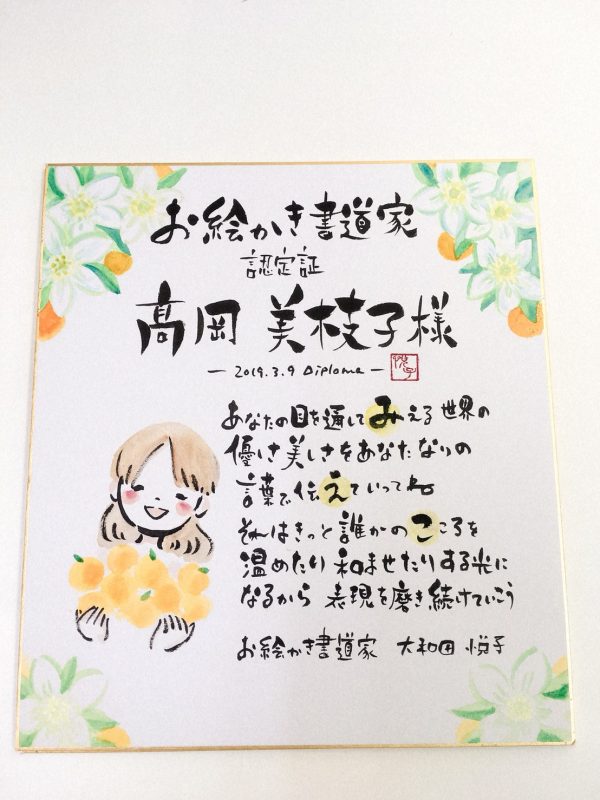 お絵かき書道家
認定証
髙岡 美枝子様
― 2019.3.9 Diploma ―
悦子
あなたの目を通してみえる世界の
優しさ美しさをあなたなりの
言葉で伝えていってね
それはきっと誰かのこころを
温めたり和ませたりする光に
なるから 表現を磨き続けていこう
お絵かき書道家 大和田 悦子